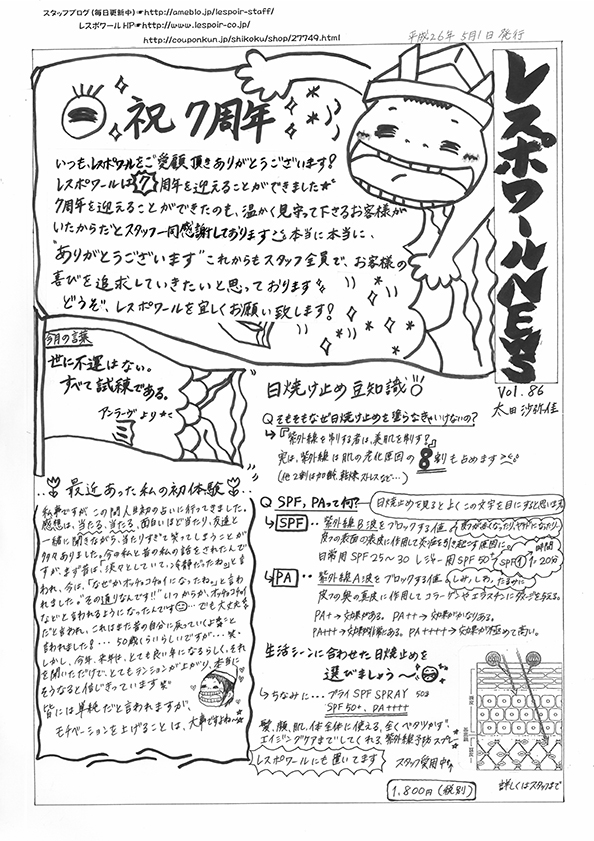 スタッフブログ(毎日更新中)☞http://ameblo.jp/lespoir-staff/
レスポワールHP☞http://www.lespoir-co.jp/
http://couponkun.jp/shikoku/shop/27749.html
平成26年 5月1日 発行
レスポワールNEWS
Vol.86
太田 沙弥佳
祝 7周年
いつも、レスポワールをご愛顧頂きありがとうございます!
レスポワールは7周年を迎えることができました
7周年を迎えることができたのも、温かく見守って下さるお客様が
いたからだとスタッフ一同感謝しております 本当に本当に、
"ありがとうございます"これからもスタッフ全員で、お客様の
喜びを追求していきたいと思っております
どうぞ、レスポワールを宜しくお願い致します!
今月の言葉
世に不運はない。
すべて試練である。
アンラーヴより
日焼け止め豆知識
Q そもそもなぜ日焼け止めを塗らなきゃいけないの?
↳『紫外線を制する者は、美肌を制す?』
実は、紫外線は肌の老化原因の8割も占めます
(他2割は加齢、乾燥、ストレスなど…)
Q SPF, PAって何?
日焼け止めを見るとよくこの文字を目にすると思います
↳ SPF ‥ 紫外線B波をブロックする値
皮フの表面の表皮に作用して炎症を引き起こす原因に。
日常用SPF25〜30 レジャー用SPF50
時間
SPF1→20分
↳ PA ‥ 紫外線A波をブロックする値 しみ、しわ、たるみに
皮フの奥の真皮に作用してコラーゲンやエラスチンにダメージを与える。
PA+→効果がある。 PA++→効果がかなりある。
PA+++→効果が非常にある。 PA++++→効果が極めて高い。
生活シーンに合わせた日焼け止めを
選びましょう〜
↳ちなみに… プライSPF SPRAY 50g
SPF50+、PA++++
髪、顔、肌、体全体に使える、全くベタツかず、
エイジングケアまでしてくれる、紫外線予防スプレー
レスポワールにも置いてます
スタッフ愛用中
1,800円(税別)
詳しくはスタッフまで
最近あった私の初体験
私事ですが、この間人生初の占いに行ってきました。
感想は、当たる、当たる、面白いほど当たり、友達と
一緒に聞きながら、当たりすぎて笑ってしまうことが
多々ありました。今の私と昔の私の話をされたんで
すが、まず昔は、「淡々としていて、冷静だったね」と言
われ、今は、「なぜかオッチョコチョイになったね。」と言わ
れました。"その通りなんです!!"いつからか、オッチョコチョイ
などと言われるようになったんです…でも大丈夫
だと言われ、これはまた昔の自分に戻っていくよと
言われました!…50歳くらいらしいですが…笑
しかし、今年、来年は、とても良い年になるらしく、それ
を聞いただけで、とてもテンションが上がり、本当に
そうなると信じきっています笑
皆には単純だと言われますが、
モチベーションを上げることは、大事ですよね〜